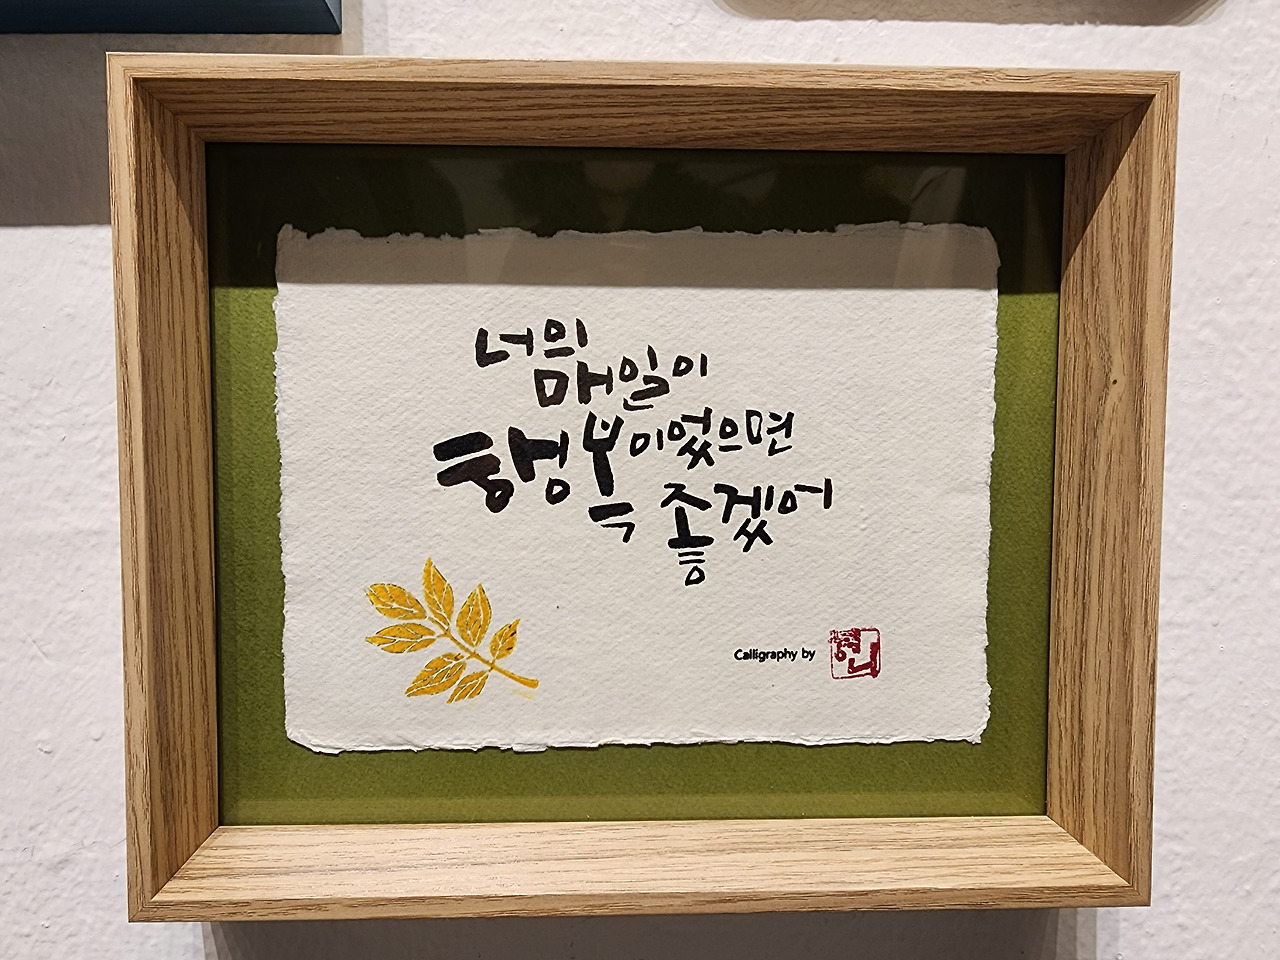 너의
매일이
행복이었으면
좋겠어
Calligraphy by
현